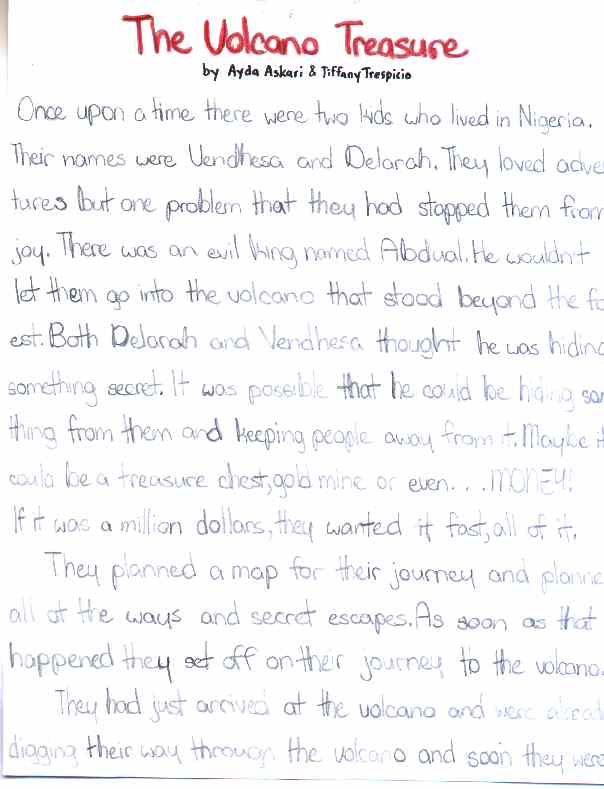 The Volcano Treasure
by Ayda Askari & Tiffany Trespicio
Once upon a time there were two kids who lived in Nigeria.
Their names were Vendhesa and Delarah. They loved adve
tures but one problem that they had stopped them from
joy. There was an evil king named Abdual. He wouldn't
let them go into the volcano that stood beyond the fo
est. Both Delarah and Vendhesa thought he was hiding
something secret. It was possible that he could be hiding som
thing from them and keeping people away from it. Maybe it
could be a treasure chest, gold mine or even... MONEY!
If it was a million dollars, they wanted it fast, all of it.
They planned a map for their journey and planne
all of the ways and secret escapes. As soon as that
happened they set off on their journey to the volcano.
They had just arrived at the volcano and were alread
digging their way through the volcano and soon they were